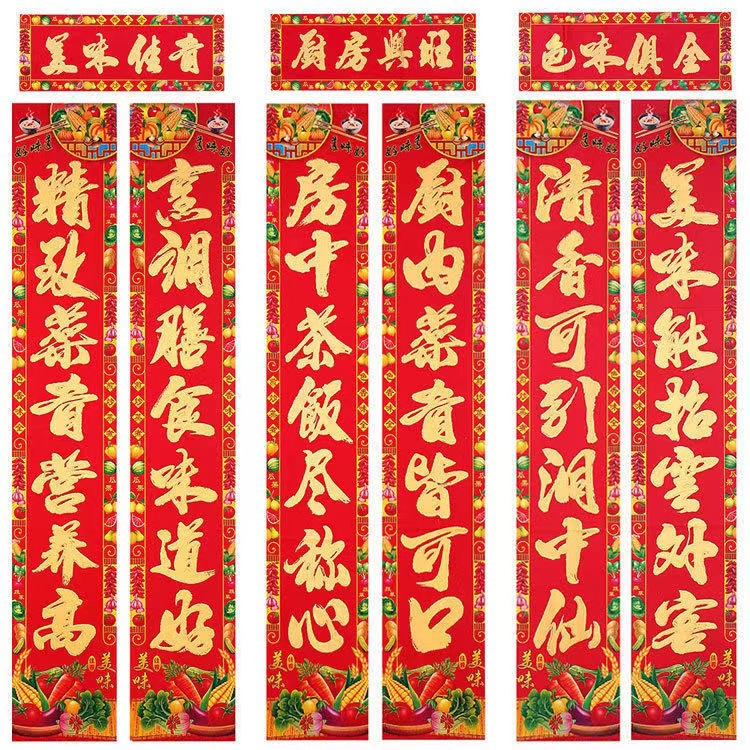 美味佳肴
烹调膳食味道好
精致菜肴营养高
厨房興旺
厨内菜肴皆可口
房中茶飯尽称心
色味俱全
美味能招雲外客
清香可引洞中仙
好味美
美味好
好味美
美味好
好味美
美味好
美味
美味
美味
美味
美味
美味